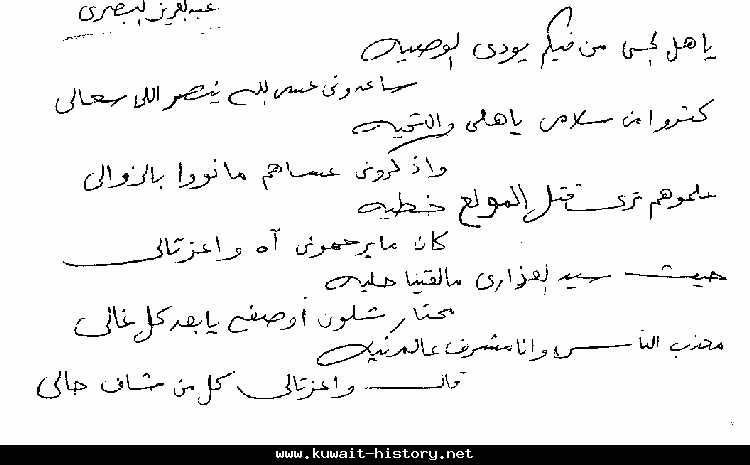 عبدالعزيز البصري
ياهل لحسى من فيكم يودي الوصيه
ساعدوني عسى الله ينصر اللى سعالى
كثروا من سلامى ياهلى والتحيه
واذكرونى عساهم مانووا بالزوالى
علموهم ترى قتل المولع خطيه
كان مايرحمونى آه واعزتالى
حيث سيد العذارى مالقينا حليه
محتار شلون أوصفه يابعد كل غالى
معذب الناس وانا مشرف عالمنيه
قال واعزتالى كل من شاف حالى
www.kuwait-history.net